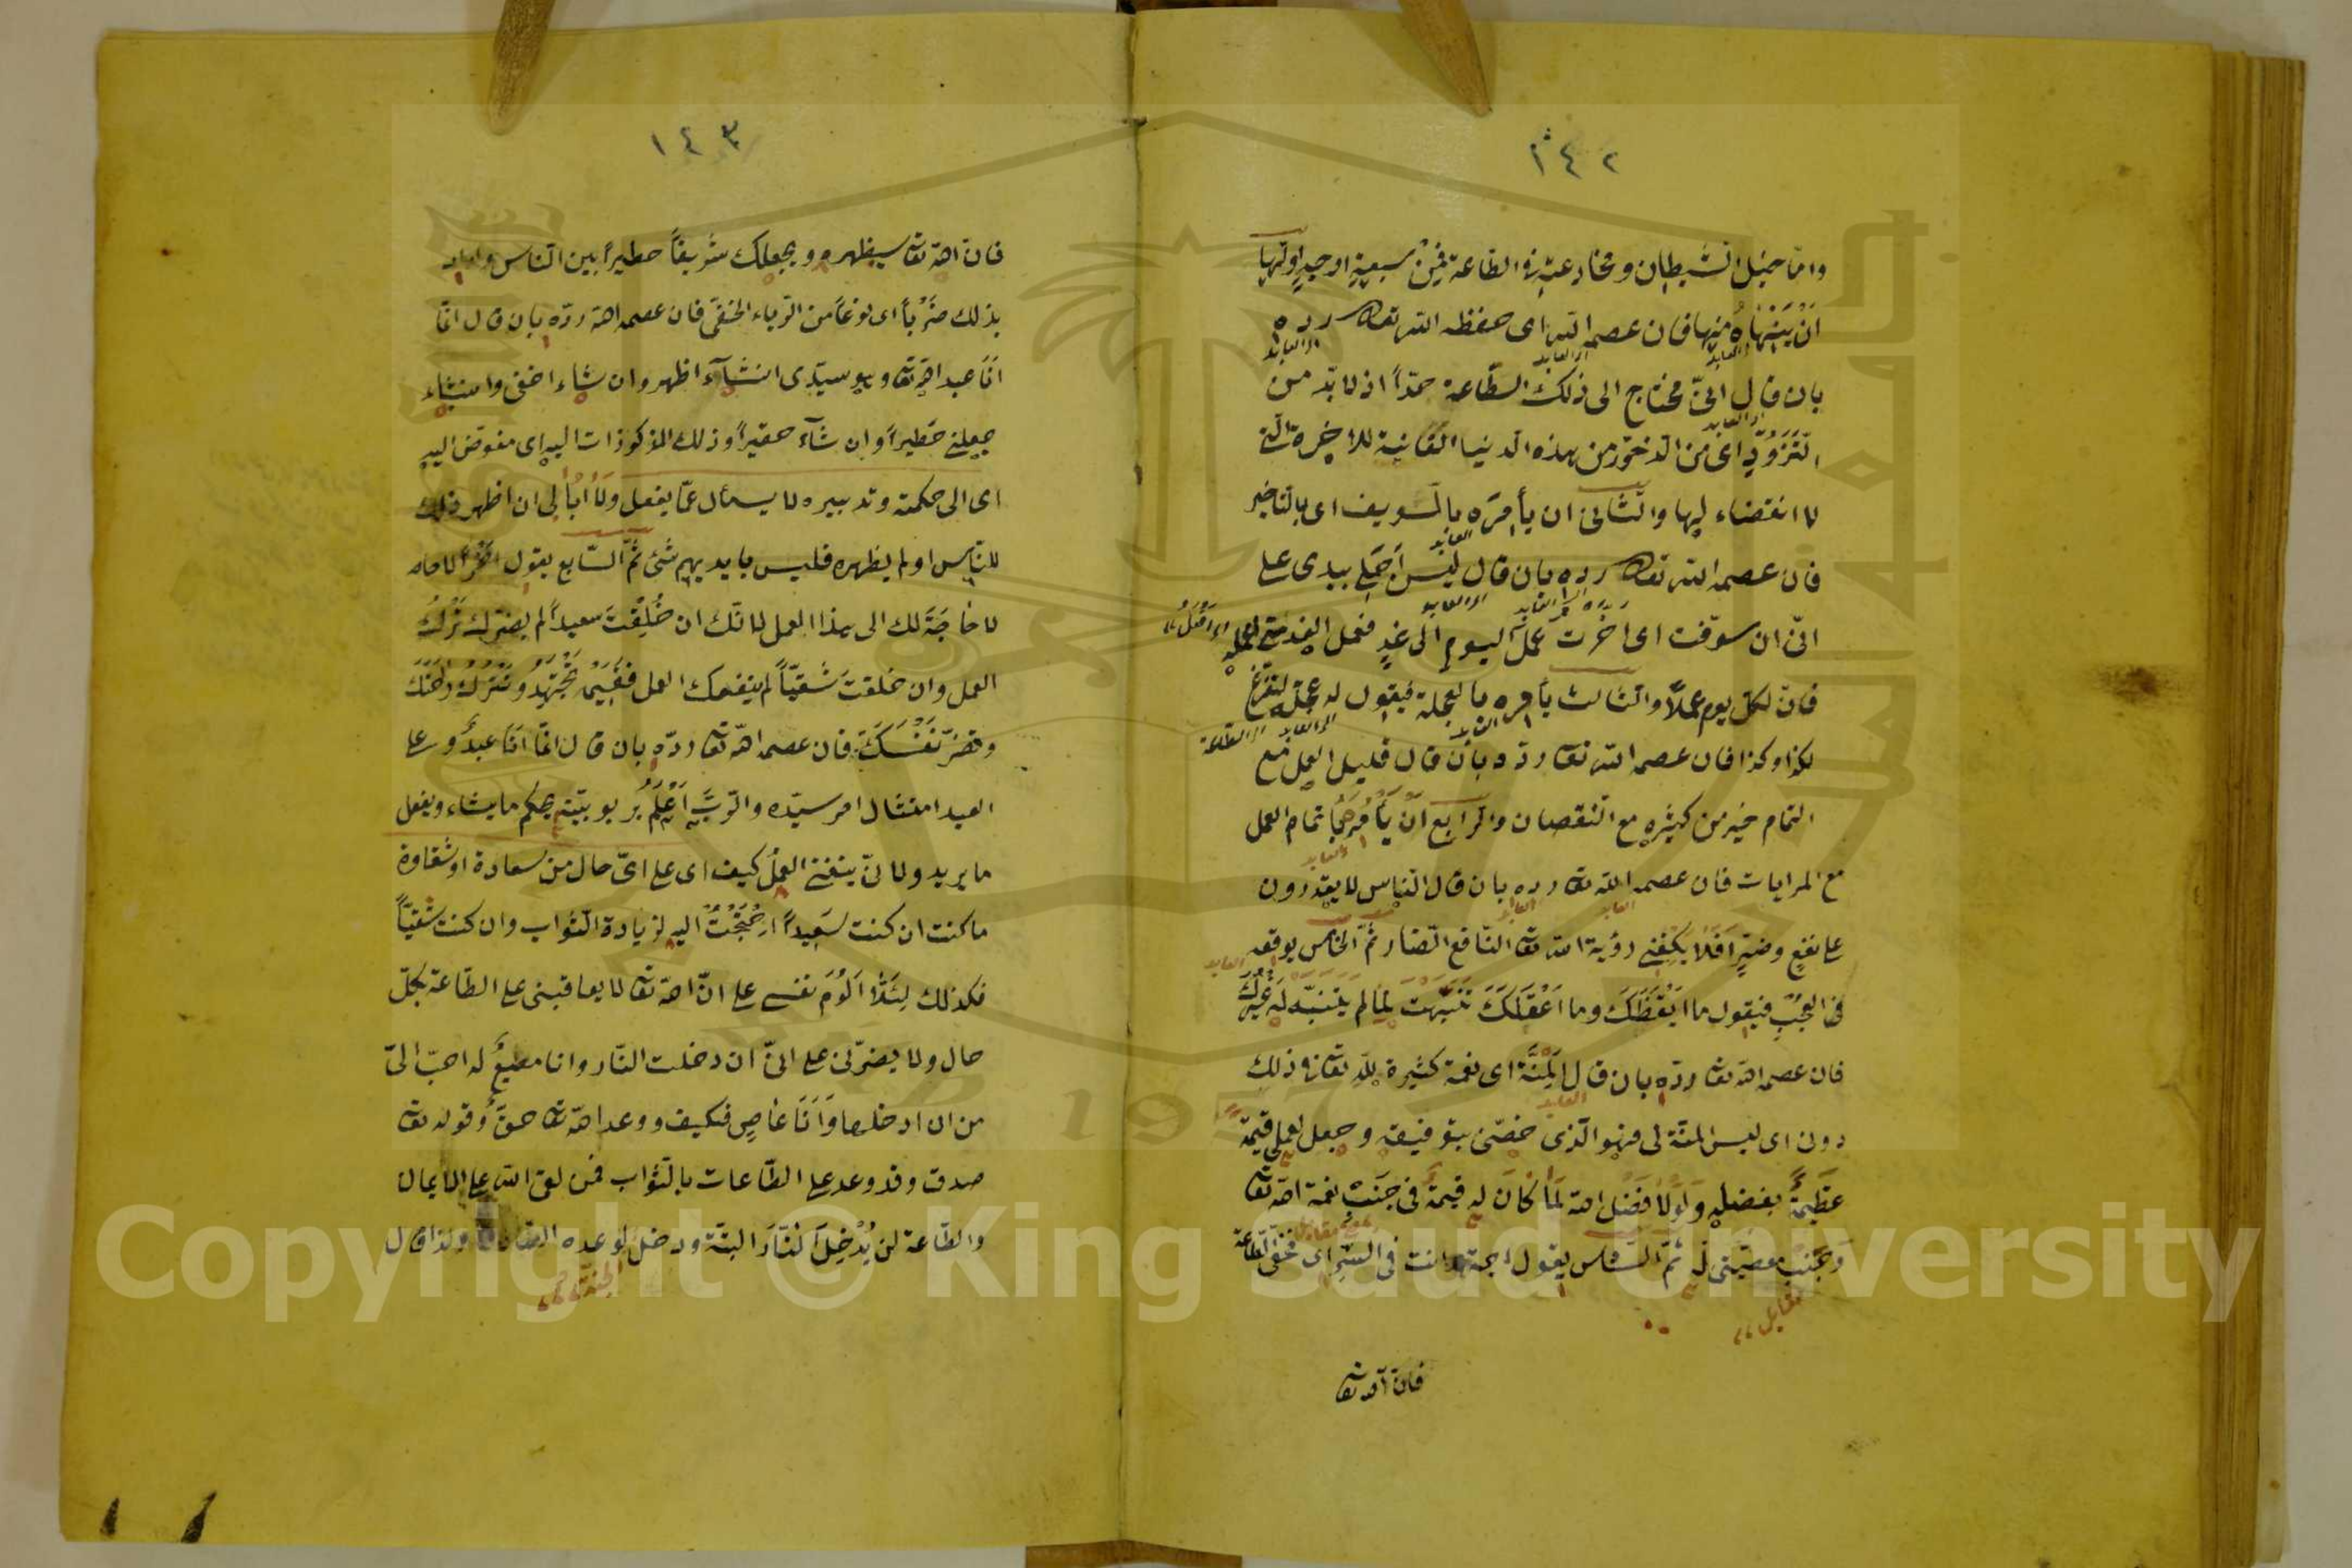 ١٤٢
واما حيل الشيطان ومخادعته في الطاعة فمن سبعة اوجه اولها
اَنْ يَنْهَاهُ منها فان عصمه الله اى حفظه الله تعالى رده
بان قال انى محتاج الى ذلك الطاعة جدّاً اذ لا بد من
التَزَوُّدِ اى من الدخر من هذه الدنيا الفانية للاخرة التى
لا انقضاء لها والثانى ان يأمره بالتسويف اى بالتاخير
فان عصمه الله تعالى رده بان قال ليس اَجَلى بيدى على
انّى ان سوّفت اى اخّرت عمل اليوم الى غدٍ فعمل الغد متى اعمله
فانّ لكل يوم عملاً والثالث يأمره بالعجلة فيقول له عجّل لتفرغ
لكذا وكذا فان عصمه الله تعالى ردّه بان قال قليل العمل مع
التمام خير من كثيره مع النقصان والرابع اَنْ يَأْمُرَهُ باتمام العمل
مع المرايات فان عصمه الله تعالى رده بان قال الناس لا يقدرون
على نفعٍ وضرٍ اَفَلَا يكفنى رؤية الله تعالى النافع الضار ثمّ الخامس يوقعه
فى العجب فيقول ما اَيْقَظَكَ وما اَعْقَلَكَ تَنَبَّهْتَ لِمَا لم يتنبّه له غَيْرُكَ
فان عصمه الله تعالى ردّه بان قال اَلْمِنَّةُ اى نعمة كثيرة لله تعالى فى ذلك
دونى اى ليس المنّة لى فهو الذى خصّنى بتوفيقه وجعل لعملى قيمةً
عَظِيمَةً بفضله وَلَوْلَا فضل الله لَمَا كَانَ له قيمة فى جَنْبِ نعمة الله تعالى
وَجَنْبِ معصيتى له ثمّ السادس يقول اجتهد انت فى السّرّ اى مخفى الطّاعة
مقابل
فان الله تعالى
١٤٣
فانّ الله تعالى سيظهره ويجعلك شريفاً خطيراً بين الناس واراد
بذلك ضَرْباً اى نوعاً من الرياء الخفى فان عصمه الله ردّه بان قال انّما
اَنَا عبد الله تعالى وهو سيّدى ان شآء اظهر وان شاء اخفى وان شاء
جعلنى خَطيراً وان شآء حقيراً وذلك المذكور ذات اليه اى مفوّض اليه
اى الى حكمته وتدبيره لا يسأل عمّا يفعل ولَا اُبَالِى ان اظهر ذلك
للناس اولم يظهره فليس بايديهم شئ ثمّ السّابع يقول
لا حَاجَةَ لك الى هذا العمل لانّك ان خُلِقْتَ سعيداً لم يضرك تَرْكُ
العمل وان خلقتَ شَقيّاً لم ينفعك العمل فَفِيمَ تَجْتَهِدُ وتَتْرُكُ رَاحَتَكَ
وتضرّ نَفْسَكَ فان عصمه الله تعالى ردّه بان قال انّما اَنَا عبدٌ وعلى
العبد امتثال امر سيّده والرّبُّ اَعْلَمُ بربوبيّته يحكم ما يشاء ويفعل
ما يريد ولانّ ينفعنى العملُ كيف اى على اىّ حال من سعادة او شقاوة
ما كنت ان كنت سَعِيداً اِحْتَجْتُ اليه لزيادة الثواب وان كنت شقيّاً
فكذلك لِئَلَّا اَلُومَ نفسى على انّ الله تعالى لا يعاقبنى على الطّاعة بكلّ
حال ولا يضرّنى على انّى ان دخلت النّار وانا مطيعٌ له احبّ الىّ
من ان ادخلها وَاَنَا عَاصٍ فكيف ووعد الله تعالى حقٌّ وقوله تعالى
صدق وقد وعد على الطّاعات بالثّواب فمن لقى الله على الايمان
والطّاعة لن يُدْخِلَ النّارَ البتّة ودخل لوعده الصادق ولذا قال
الجنّة